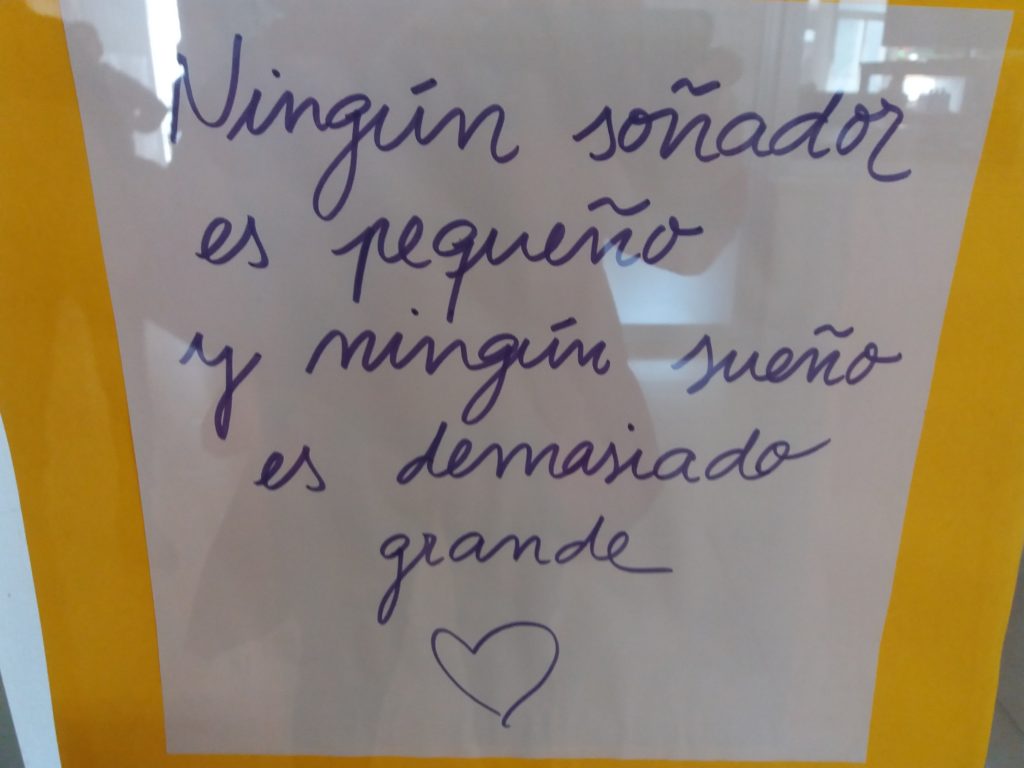 Ningún soñador
es pequeño
y ningún sueño
es demasiado
grande